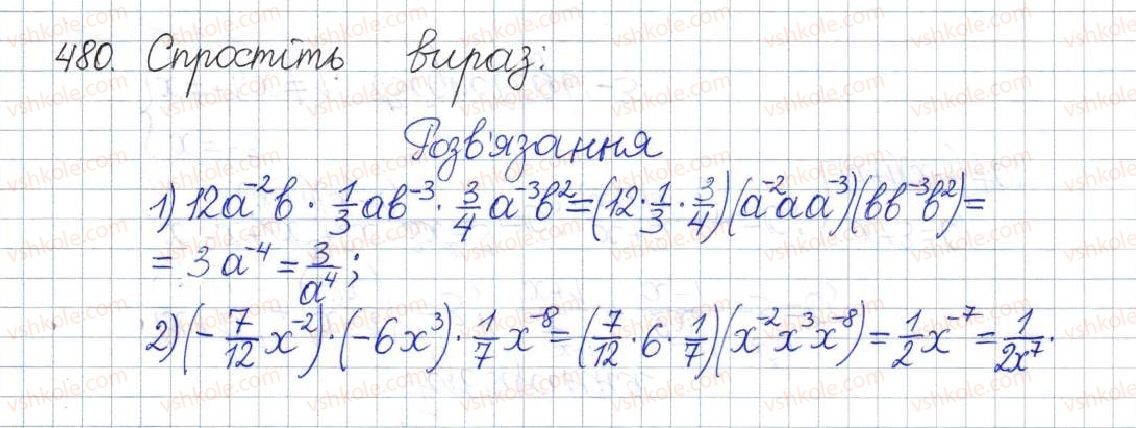 480. Спростіть вираз:
Розв'язання
1) 12a⁻²b · 1/3 ab⁻³ · 3/4 a⁻³b² = (12 · 1/3 · 3/4)(a⁻²aa⁻³)(bb⁻³b²) =
= 3a⁻⁴ = 3/a⁴;
2) (-7/12 x⁻²) · (-6x³) · 1/7 x⁻⁸ = (7/12 · 6 · 1/7)(x⁻²x³x⁻⁸) = 1/2 x⁻⁷ = 1/2x⁷.